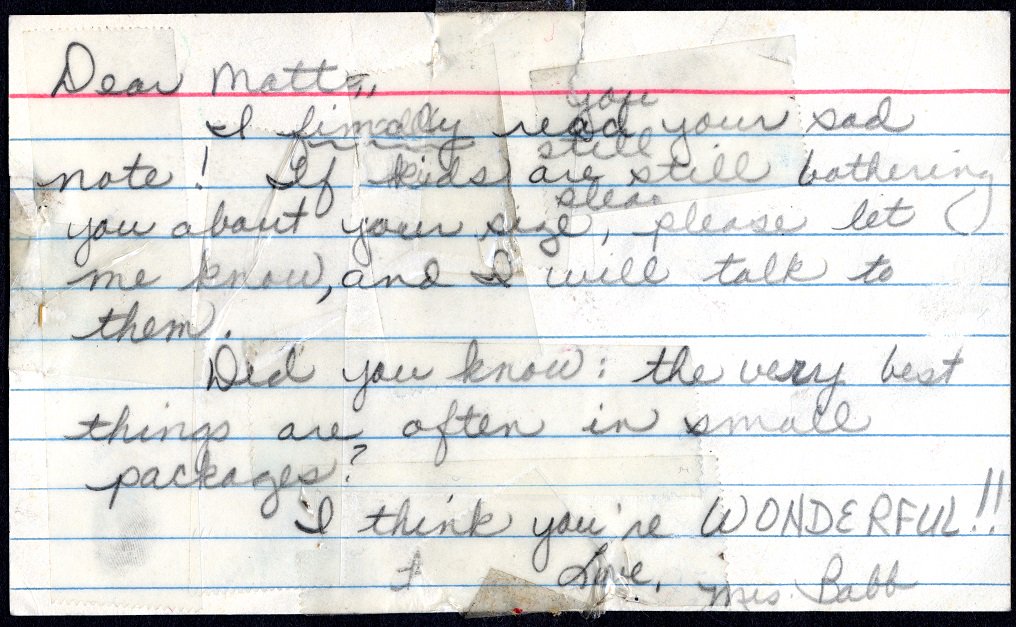 Dear Matt,
you
I finally read your sad
still
note! If kids are still bothering
pleas
you about your size, please let
me know, and I will talk to
them.
Did you know: the very best
things are often in small
packages?
I think you're WONDERFUL!!
I Love,
Mrs. Babb